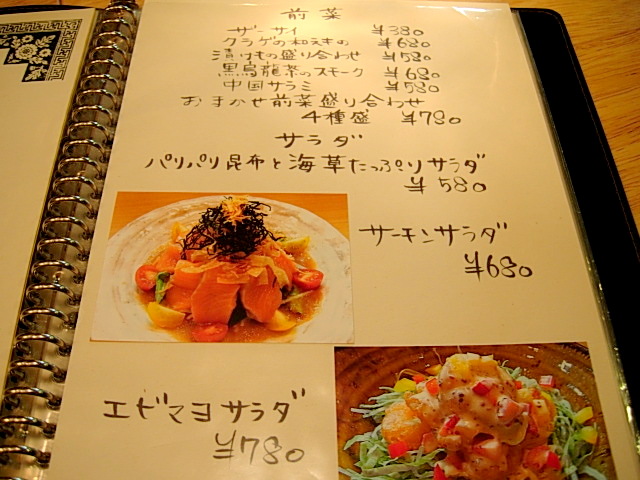 前菜
ザーサイ ¥380
クラゲの和えもの ¥680
漬けもの盛り合わせ ¥580
黒烏龍茶のスモーク ¥680
中国サラミ ¥580
おまかせ前菜盛り合わせ
4種盛 ¥780
サラダ
パリパリ昆布と海草たっぷりサラダ
¥580
サーモンサラダ
¥680
エビマヨサラダ
¥780